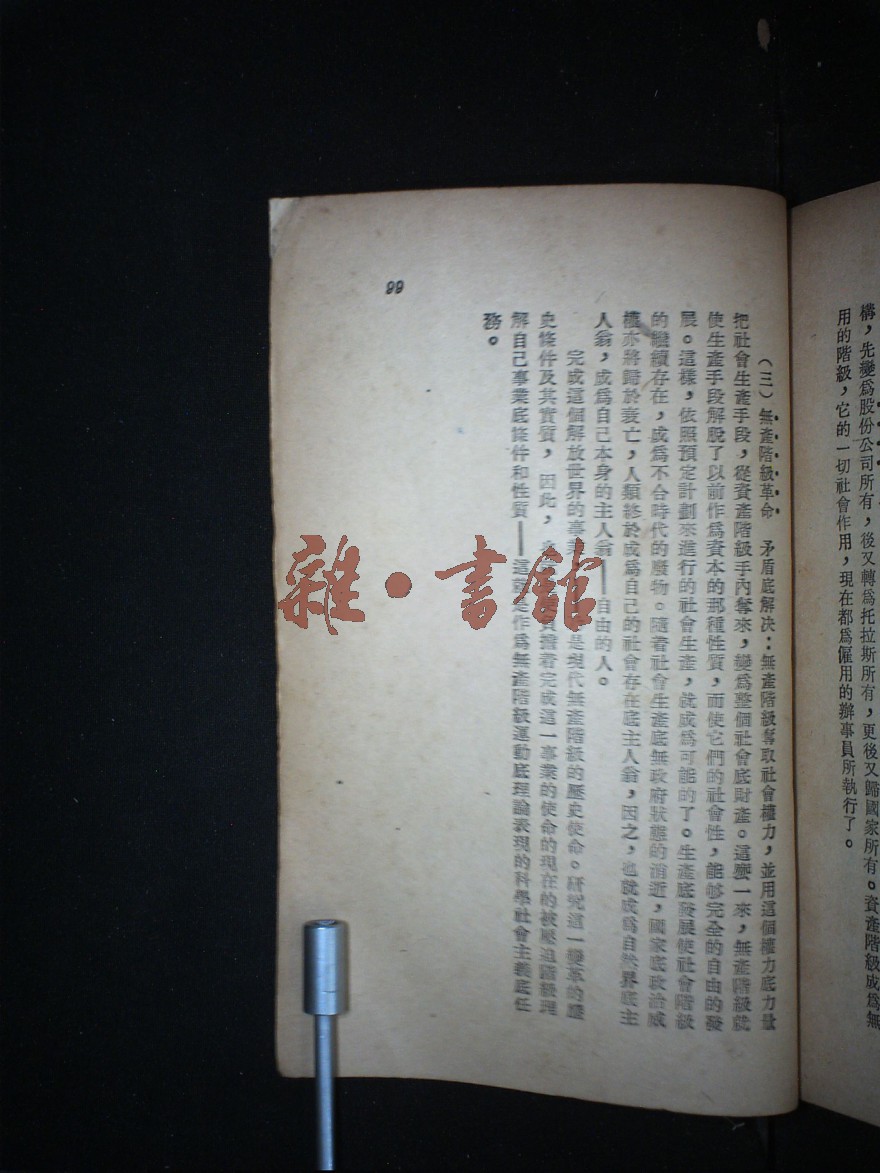 構，先變爲股份公司所有，後又轉爲托拉斯所有，更後又歸國家所有。資產階級成爲無
用的階級，它的一切社會作用，現在都爲僱用的辦事員所執行了。
（三）無產階級革命　矛盾底解決：無產階級奪取社會權力，並用這個權力底力量
把社會生產手段，從資產階級手內奪來，變爲整個社會底財產。這麼一來，無產階級就
使生產手段解脫了以前作爲資本的那種性質，而使它們的社會性，能够完全的自由的發
展。這樣，依照預定計劃來進行的社會生產，就成爲可能的了。生產底發展使社會階級
的繼續存在，成爲不合時代的廢物。隨着社會生產底無政府狀態的消逝，國家底政治威
權亦將歸於衰亡，人類終於成爲自己的社會存在底主人翁，因之，也就成爲自然界底主
人翁，成爲自己本身的主人翁——自由的人。
完成這個解放世界的事業，是現代無產階級的歷史使命。研究這一變革的歷
史條件及其實質，因此，負擔着完成這一事業的使命的現在的被壓迫階級理
解自己事業底條件和性質——這就是作爲無產階級運動底理論表現的科學社會主義底任
務。
99
雜·書館